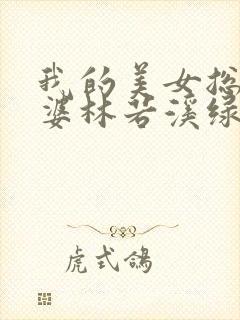 我的美女总
婆林若溪绿
虎式鸽